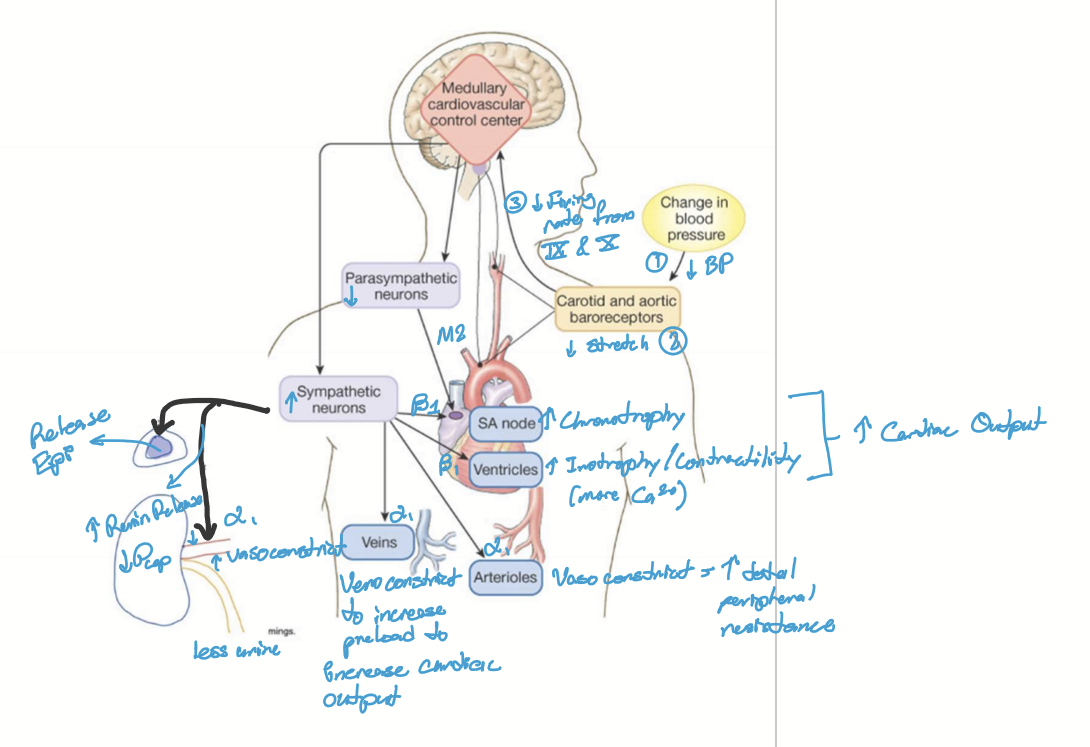 Medullary
cardiovascular
control center
③ ↓ Firing
rate from
IX & X
Change in
blood
pressure
① ↓ BP
Parasympathetic
neurons
↓
Carotid and aortic
baroreceptors
↓ stretch ②
M2
↑ Sympathetic
neurons
β1
SA node
↑ Chronotrophy
β1
Ventricles
↑ Inotrophy/Contractility
(more Ca2+)
↑ Cardiac Output
Release
Epi
↑ Renin Release
α1
↓ Pcap
↓
↑ vasoconstrict
less urine
mings.
α1
Veins
Venoconstrict
to increase
preload to
increase cardiac
output
α1
Arterioles
Vasoconstrict = ↑ total
peripheral
resistance